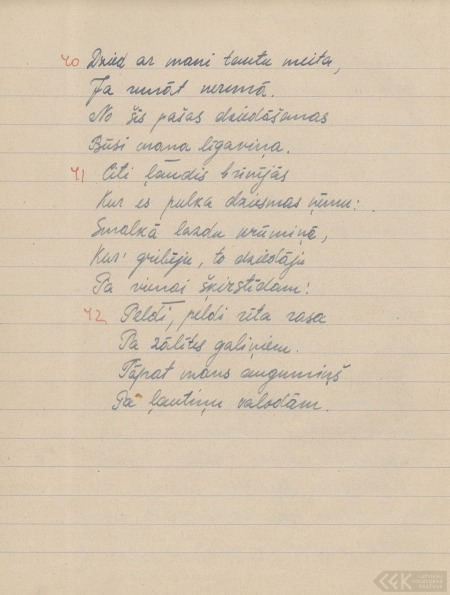 40 Dzied ar mani tautu meita,
Ja runāt nerunā.
No šīs pašas dziedāšanas
Būsi mana līgaviņa.
41 Citi ļaudis brīnījās
Kur es pulka dziesmas ņēmu:
Smalkā lazdu krūmiņā,
Kur' gribēju, to dziedāju
Pa vienai šķirstīdam!
42 Peldi, peldi rīta rasa
Pa zālītes galiņiem.
Tāpat mans augumiņš
Pa ļautiņu valodām.